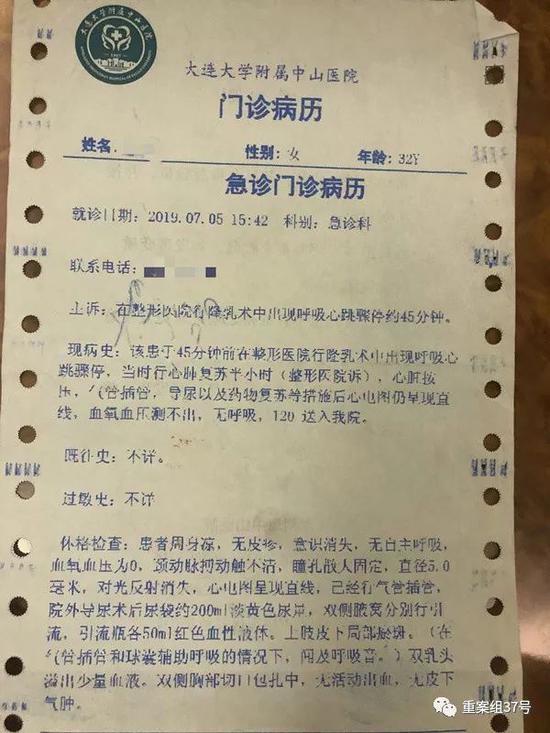 大连大学附属中山医院
大连大学附属中山医院
门诊病历
姓名: 性别: 女 年龄: 32Y
急诊门诊病历
就诊日期: 2019.07.05 15:42 科别: 急诊科
联系电话:
主诉: 在整形医院行隆乳术中出现呼吸心跳骤停约45分钟。
现病史: 该患于45分钟前在整形医院行隆乳术中出现呼吸心
跳骤停, 当时行心肺复苏半小时(整形医院诉), 心脏按
压, 气管插管, 导尿以及药物复苏等措施后心电图仍呈现直
线, 血氧血压测不出, 无呼吸, 120 送入我院。
既往史: 不详。
过敏史: 不详
体格检查: 患者周身凉, 无皮疹, 意识消失, 无自主呼吸,
血氧血压为0, 颈动脉搏动触不清, 瞳孔散大固定, 直径5.0
毫米, 对光反射消失, 心电图呈现直线, 已经行气管插管,
院外导尿术后尿袋约200ml淡黄色尿液, 双侧腋窝分别行引
流, 引流瓶各50ml红色血性液体。上肢皮下局部瘀斑。(在
气管插管和球囊辅助呼吸的情况下, 闻及呼吸音。) 双乳头
溢出少量血液。双侧胸部切口包扎中, 无活动出血, 无皮下
气肿。
重案组37号